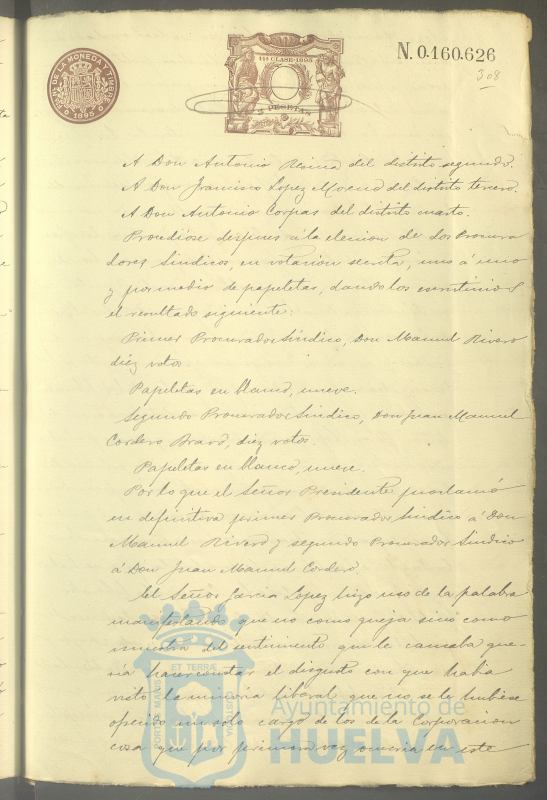 DE LA MONEDA Y TIMBRE
1895
11ª CLASE-1895
2 PESETAS
N. 0.160.626
308
A Don Antonio Resina del distrito segundo.
A Don Francisco Lopez Moreno del distrito tercero.
A Don Antonio Corpas del distrito cuarto.
Procediose despues á la eleccion de dos Procura
dores Sindicos, en votacion secreta, uno á uno
y por medio de papeletas, dando los escrutinios
el resultado siguiente:
Primer Procurador Sindico, Don Manuel Rivero
diez votos
Papeletas en blanco, nueve.
Segundo Procurador Sindico, Don Juan Manuel
Cordero Bravo, diez votos.
Papeletas en blanco, nueve.
Por lo que el Señor Presidente proclamó
en definitiva primer Procurador Sindico á Don
Manuel Rivero y segundo Procurador Sindico
á Don Juan Manuel Cordero.
El Señor Garcia Lopez hizo uso de la palabra
manifestando que no como queja sino como
muestra del sentimiento que le causaba que-
ria hacer constar el disgusto con que habia
visto la minoria liberal que no se le hubiese
ofrecido un solo cargo de los de la Corporacion
cosa que por primera vez ocurria en este
PORTUS MARIS ET TERRÆ CUSTODIA
Ayuntamiento de
HUELVA